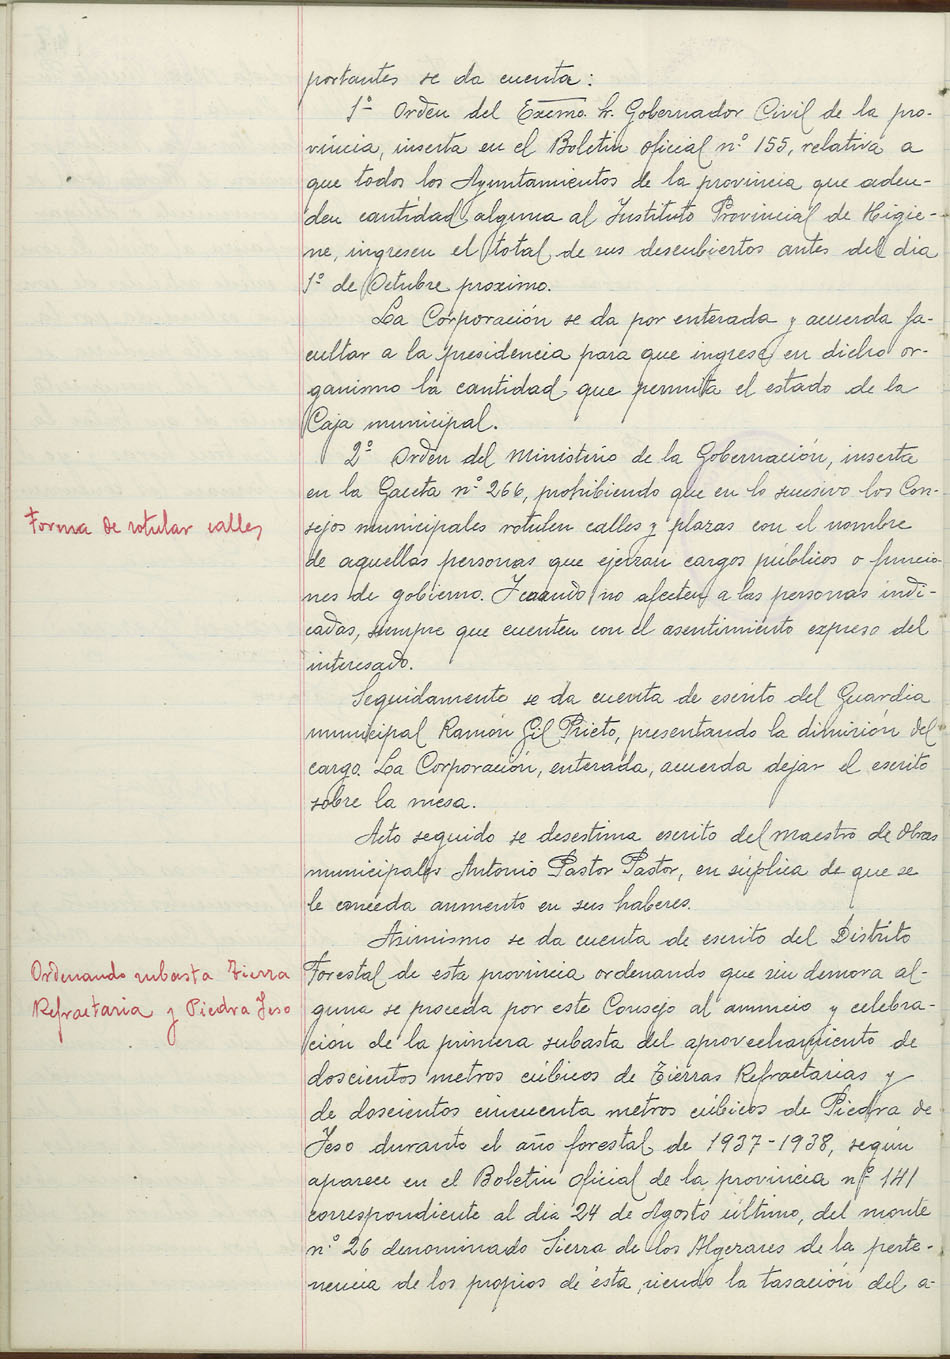 portantes se da cuenta:
1º Orden del Excmo. Sr. Gobernador Civil de la pro-
vincia, inserta en el Boletin Oficial nº 155, relativa a
que todos los Ayuntamientos de la provincia que adeu-
den cantidad alguna al Instituto Provincial de Higie-
ne, ingresen el total de sus descubiertos antes del dia
1º de Octubre proximo.
La Corporación se da por enterada y acuerda fa-
cultar a la presidencia para que ingrese en dicho or-
ganismo la cantidad que permita el estado de la
Caja municipal.
2º Orden del Ministerio de la Gobernación, inserta
en la Gaceta nº 266, prohibiendo que en lo sucesivo los Con-
Forma de rotular calles
sejos municipales rotulen calles y plazas con el nombre
de aquellas personas que ejerzan cargos públicos o funcio-
nes de gobierno. Y cuando no afecten a las personas indi-
cadas, siempre que cuenten con el asentimiento expreso del
interesado.
Seguidamente se da cuenta de escrito del Guardia
municipal Ramón Gil Prieto, presentando la dimisión del
cargo. La Corporación, enterada, acuerda dejar el escrito
sobre la mesa.
Acto seguido se desestima escrito del maestro de Obras
municipales Antonio Pastor Pastor, en súplica de que se
le conceda aumento en sus haberes.
Asimismo se da cuenta de escrito del Distrito
Ordenando subasta Tierra
Refractaria y Piedra Yeso
Forestal de esta provincia ordenando que sin demora al-
guna se proceda por este Consejo al anuncio y celebra-
ción de la primera subasta del aprovechamiento de
doscientos metros cúbicos de Tierras Refractarias y
de doscientos cincuenta metros cúbicos de Piedra de
Yeso durante el año forestal de 1937-1938, según
aparece en el Boletin Oficial de la provincia nº 141
correspondiente al dia 24 de Agosto último, del monte
nº 26 denominado Sierra de los Algezares de la perte-
nencia de los propios de ésta, siendo la tasación del a-